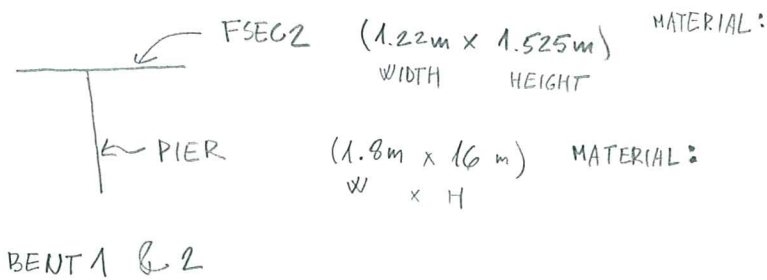 FSEC2 (1.22m x 1.525m) MATERIAL:
WIDTH HEIGHT
PIER (1.8m x 16 m) MATERIAL:
W x H
BENT 1 & 2